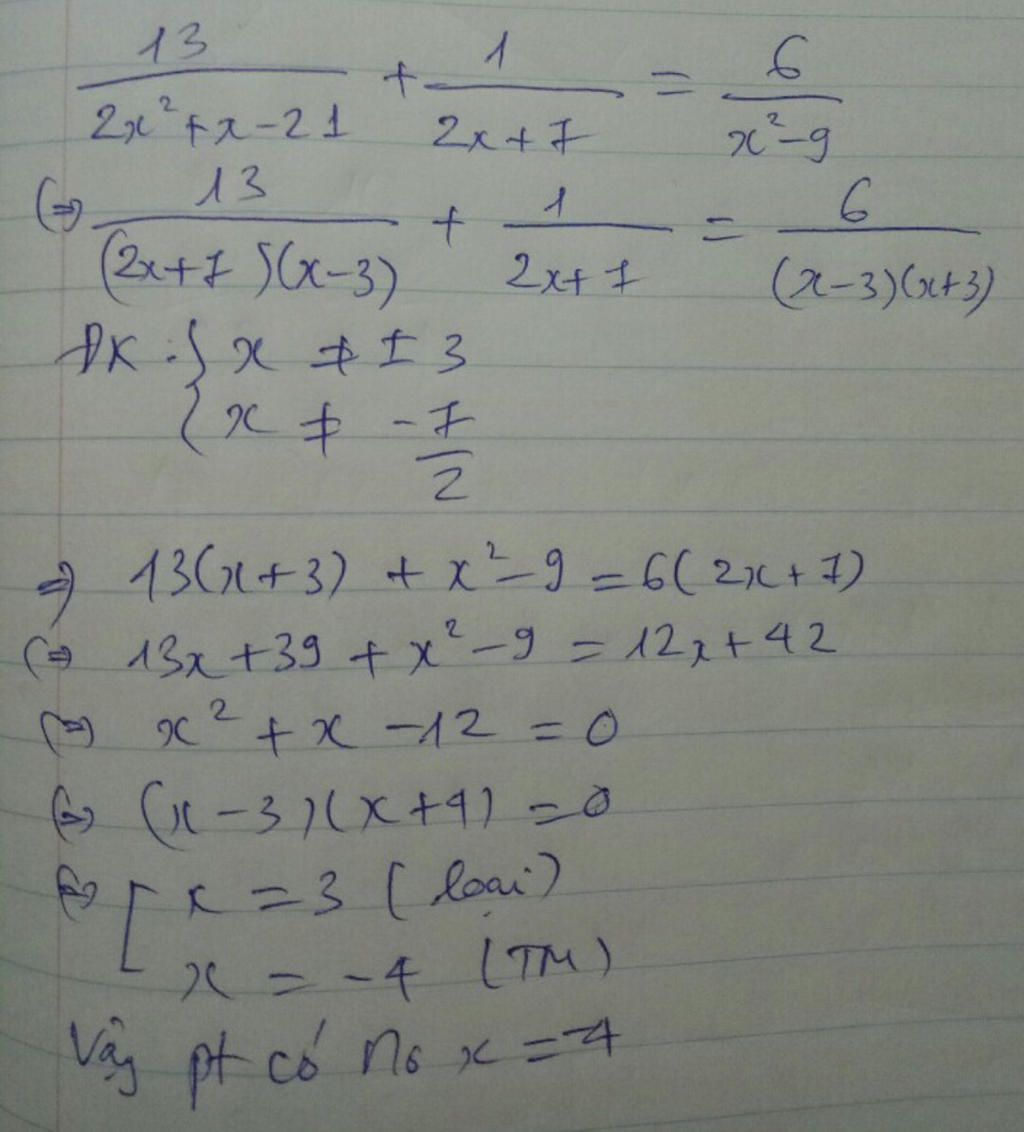 13/(2x²+x-21) + 1/(2x+7) = 6/(x²-9)
(=) 13/((2x+7)(x-3)) + 1/(2x+7) = 6/((x-3)(x+3))
ĐK: { x ≠ ±3
{ x ≠ -7/2
=) 13(x+3) + x²-9 = 6(2x+7)
(=) 13x+39 + x²-9 = 12x+42
(=) x² + x - 12 = 0
(=) (x-3)(x+4) = 0
(=) [ x = 3 (loại)
x = -4 (TM)
Vậy pt có no x = -4